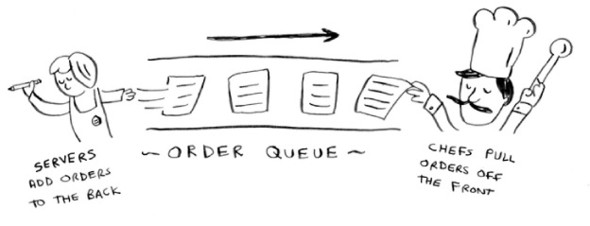 SERVERS
ADD ORDERS
TO THE BACK
~ ORDER QUEUE ~
CHEFS PULL
ORDERS OFF
THE FRONT